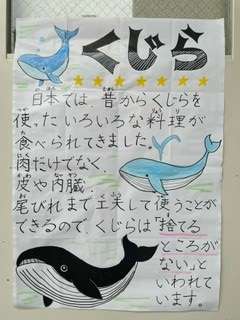 くじら
日本では、昔からくじらを
使ったいろいろな料理が
食べられてきました。
肉だけでなく、
皮や内臓、
尾びれまで工夫して使うことが
できるので、くじらは「捨てる
ところが
ない」と
いわれて
います。